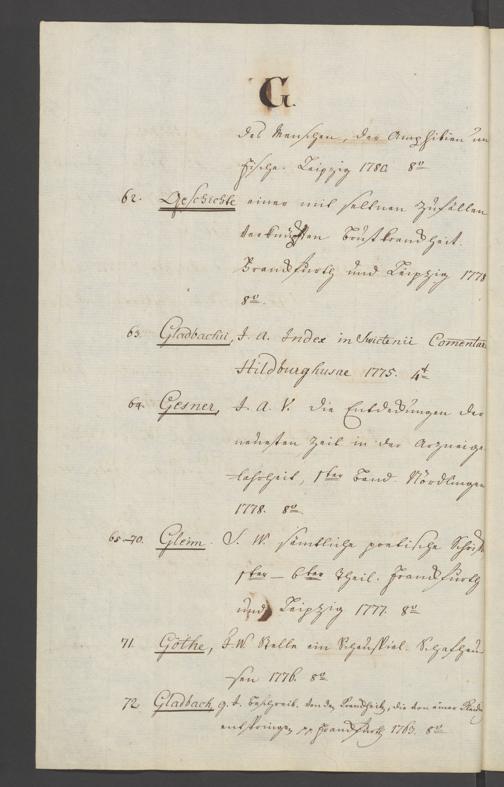 G.
des Menschen, der Amphibien un
Fische. Leipzig 1780. 8º
62. Geschichte einer mit seltnen Zufällen
verknüpften Brustkrankheit.
Frankfurth und Leipzig 1778
8º.
63. Gladbachii, J. A. Index in Swietenii Comentar
Hildburghusae 1775. 4t
64. Gesner, J. A. V. die Entdeckungen der
neuesten Zeit in der Arzneige
lahrheit, 1ter Band Nördlingen
1778. 8º
65-70. Gleim. J. W. sämtliche poetische Schrift
1ter - 6ter Theil. Frankfurth
und Leipzig 1777. 8º
71. Göthe, J. W. Stella ein Schauspiel. Schafhau-
sen 1776. 8º
72. Gladbach, Beschreib. von den Krankheit, die von einer
entspringen Frankfurth 1763. 8º